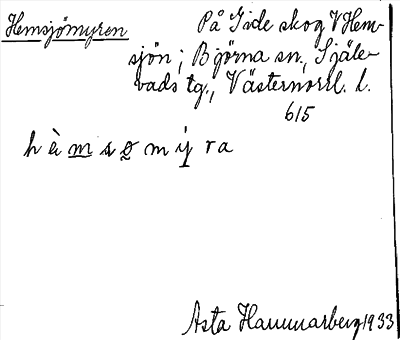 Hemsjömyren
På Gide skog V Hem-
sjön; Björna sn., Själe-
vads tg., Västernorrl. l.
615
h è m s ø m y̨ r a
Asta Hammarberg 1933